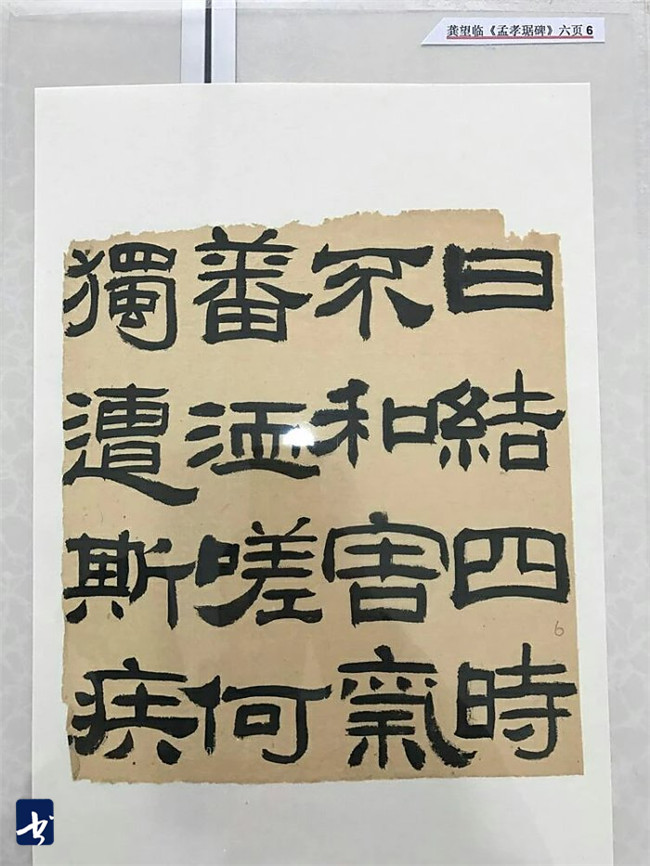 龚望临《孟孝琚碑》六页 6
日結四時
不和害氣
蕃溢嗟何
獨遭斯疾
6
书